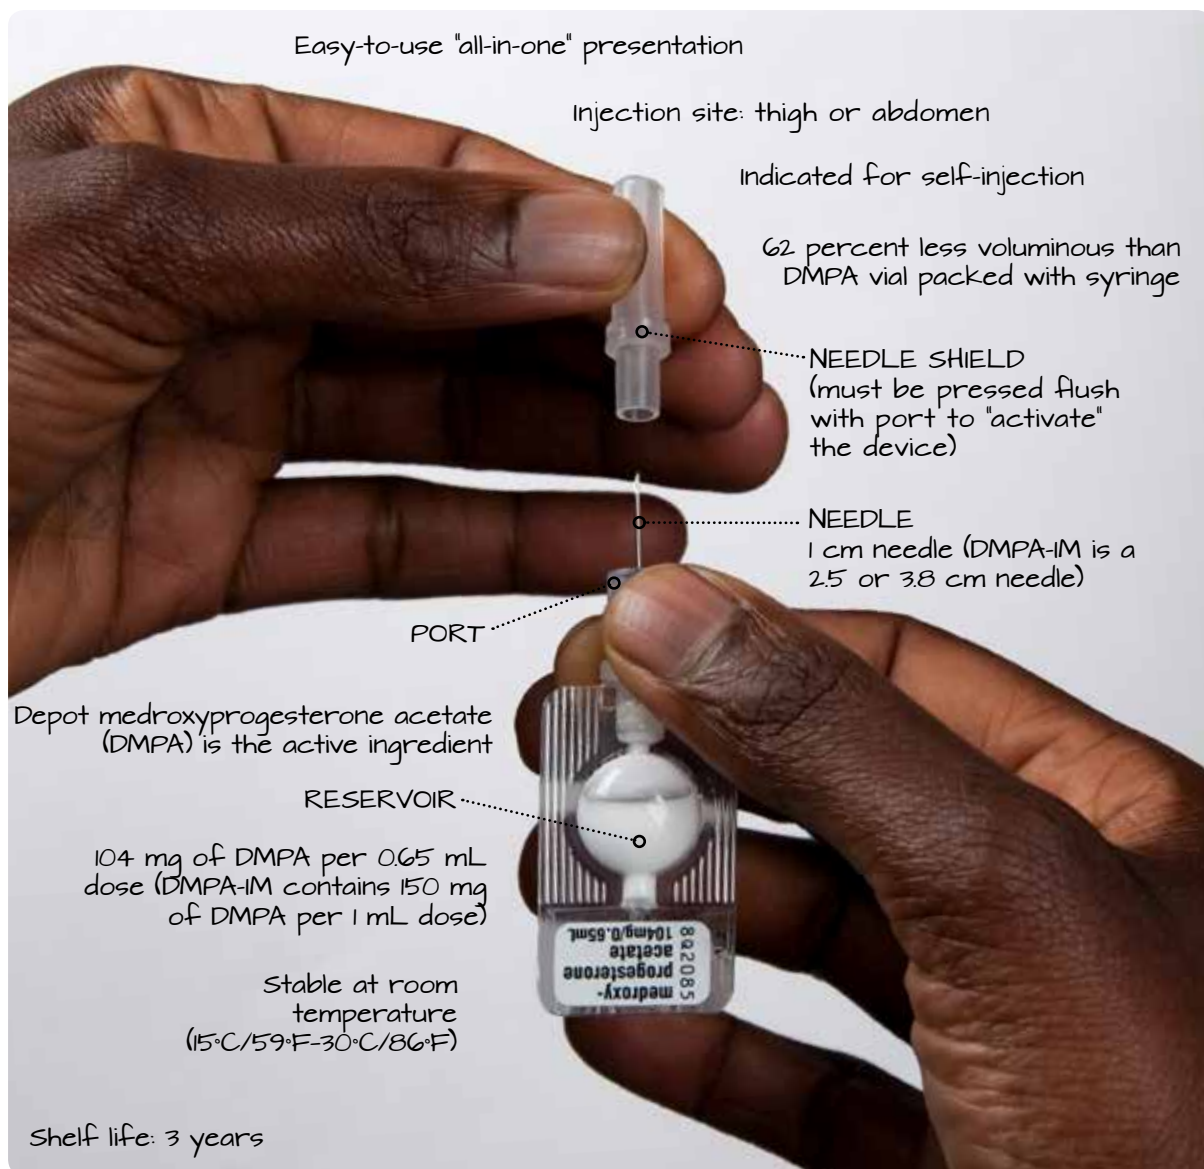 Easy-to-use "all-in-one" presentation
Injection site: thigh or abdomen
Indicated for self-injection
62 percent less voluminous than
DMPA vial packed with syringe
NEEDLE SHIELD
(must be pressed flush
with port to "activate"
the device)
NEEDLE
1 cm needle (DMPA-IM is a
2.5 or 3.8 cm needle)
PORT
Depot medroxyprogesterone acetate
(DMPA) is the active ingredient
RESERVOIR
104 mg of DMPA per 0.65 mL
dose (DMPA-IM contains 150 mg
of DMPA per 1 mL dose)
medroxy-
progesterone
acetate
104mg/0.65mL
8Q2085
Stable at room
temperature
(15°C/59°F-30°C/86°F)
Shelf life: 3 years